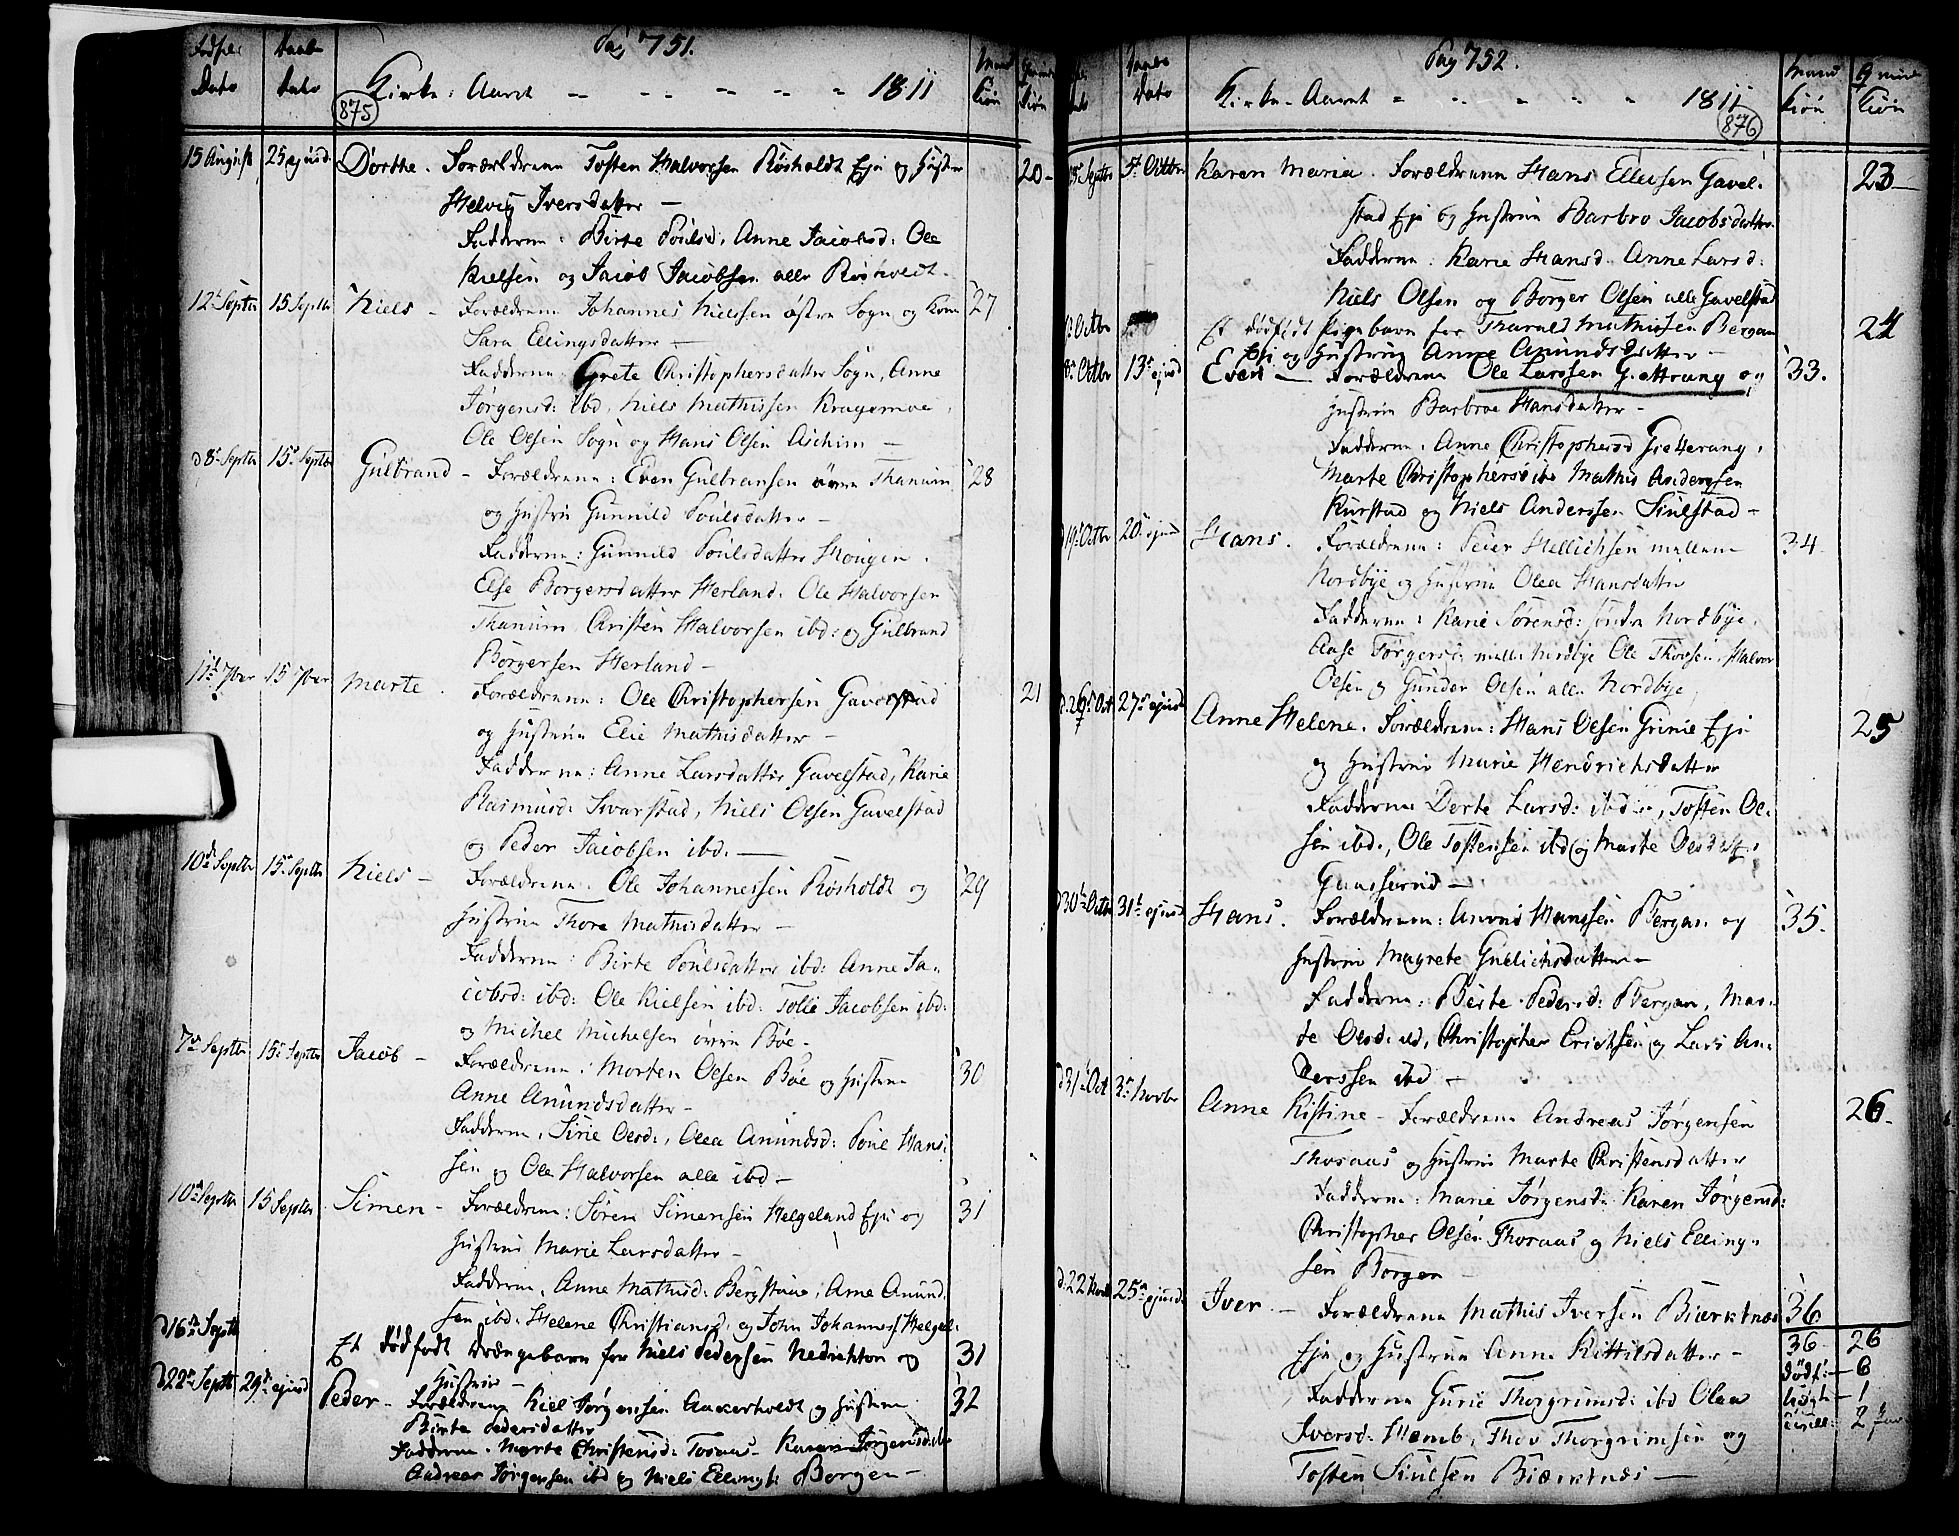 Fødsels Daabs Pag 751. Mand Qvinde
Dato Dato Kirke-Aaret 1811 Kiøn Kiøn
875
15 August 25 ejusd: Dorthe. Forældrene Tosten Halvorsen Røsholdt Eje og Hustru 20
Helvig Iversdatter
Fadderne: Birte Poulsd: Anne Jacobsd: Ole
Kielsen og Jacob Jacobsen alle Røsholdt.
12t Septbr 15 Septbr Niels Forældrene Johannes Nielssen østre Sogn og Kone 27
Sara Ellingsdatter
Fadderne Grete Christophersdatter Sogn, Anne
Jørgensd: ibd, Niels Mathissen Kragomoe,
Ole Olsen Sogn og Hans Olsen
d 8t Septbr 15 Septbr Gulbrand Forældrene: Even Gulbransen øvre Thanum 28
og Hustru Gunnild Poulsdatter
Fadderne: Gunnild Poulsdatter Hougen.
Else Borgersdatter Herland. Ole Halvorsen
Thanum, Christen Halvorsen ibd: og Gulbrand
Borgersen Herland
11t 7ber 15 7ber Marte. Forældrene: Ole Christophersen Gavelstad 21
og Hustrue Elie Mathisdatter
Fadderne: Anne Larsdatter Gavelstad, Karie
Rasmusd: Svarstad, Niels Olsen Gavelstad
og Peder Jacobsen ibd.
10de Septbr 15 Septbr Niels Forældrene. Ole Johannessen Røsholdt og 29
Hustrue Thore Mathisdatter
Fadderne: Birte Poulsdatter ibd: Anne Ja-
cobsd: ibd: Ole Kielsen ibd: Tolle Jacobsen ibd:
og Michel Michelsen øvre Bøe
7de Septbr 15 Septbr Jacob Forældrene: Morten Olsen Bøe og Hustrue 30
Anne Amundsdatter
Fadderne, Sirie Olsd:, Olea Amundsd: Poul Hans-
sen og Ole Halvorsen alle ibd
10de Septbr 15 Septbr Simen Forældrene: Søren Simensen Helgeland Eje og 31
Hustrue Marie Larsdatter
Fadderne, Anne Mathisd: Bergstuae, Arne Amund-
sen ibd: Helene Christiansd: og John Johanness: Helgel:
d 16de Septb Et dødfødt Drængebarn for Niels Pedersen og 31
Hustrue
d 22de Septb 29de ejusd Peder Forældrene Kiel Jørgensen Aakerholdt og Hustrue 32
Birte Pedersdatter
Fadderne. Marte Christensd: Toraas Karen Jørgensd:
Andreas Jørgensen ibd og Niels Ellings: Borgen
Daabs Pag 752. Mand Qvinde
Dato Dato Kirke-Aaret 1811 Kiøn Kiøn
876
Septbr 5t Octbr Karen Maria. Forældrene Hans Ellevsen Gavel- 23
stad Eje og Hustrue Barbro Jacobsdatter
Fadderne: Karie Hansd. Anne Larsd:
Niels Olsen og Borger Olsen alle Gavelstad
Octbr Et dødfødt Pigebarn for Tharald Mathissen Bergan 24
Eje og Hustrue Anne Amundsdatter
8de Octbr 13de ejusd Even Forældrene Ole Larssen Giettrang og 33.
Hustrue Barbroe Hansdatter
Fadderne: Anne Christophersd Gietterang,
Marte Christophersd ibd Mathis Anderssen
Kurstad og Niels Anderssen Siulstad
d 19de Octbr 20 ejusd Hans. Forældrene: Peier Hellichsen mellem 34
Nordbye og Hustrue Olea Hansdatter
Fadderne: Karie Sørensd: søndre Nordbye.
Aase Torgersd: melle Nordbye Ole Thovsen, Halvor
Olsen og Gunder Olsen alle Nordbye
d. 26de Oct 27de ejusd Anne Helene. Forældrene: Hans Olsen Grinie Eje 25
og Hustrue Marie Hendrichsdatter
Fadderne Dorte Larsd: ibd, Tosten Ol-
sen ibd., Ole Tostensen ibd og Marte Olsdatt:
Gaaserud
d 30te Octbr 31t ejusd Hans. Forældrene: Amund Hanssen Bergan og 35.
Hustrue Magrete Gullichsdatter
Fadderne: Birte Pedersd: Bergan, Mar-
te Olsd: ibd, Christopher Erichsen og Lars An-
derssen ibd
d 31t Oct 3de Novbr Anne Kistine Forældrene Andreas Jørgensen 26
Thoraas og Hustrue Marte Christensdatter
Fadderne: Marie Jørgensd: Karen Jørgensd:
Christopher Olsen Thoraas og Niels Elling-
sen Borgen
d: 22 Novbr 25de ejusd: Iver. Forældrene Mathis Iversen Biærktnæs 36
Eje og Hustrue Anne Kittilsdatter 36 26
dødf: 6
Fadderne Gurie Thorgrimsd: ibd Olea 1
Iversd: Hæmb, Thov Thorgrimsen og 2
Tosten Siulsen Biærktnæs